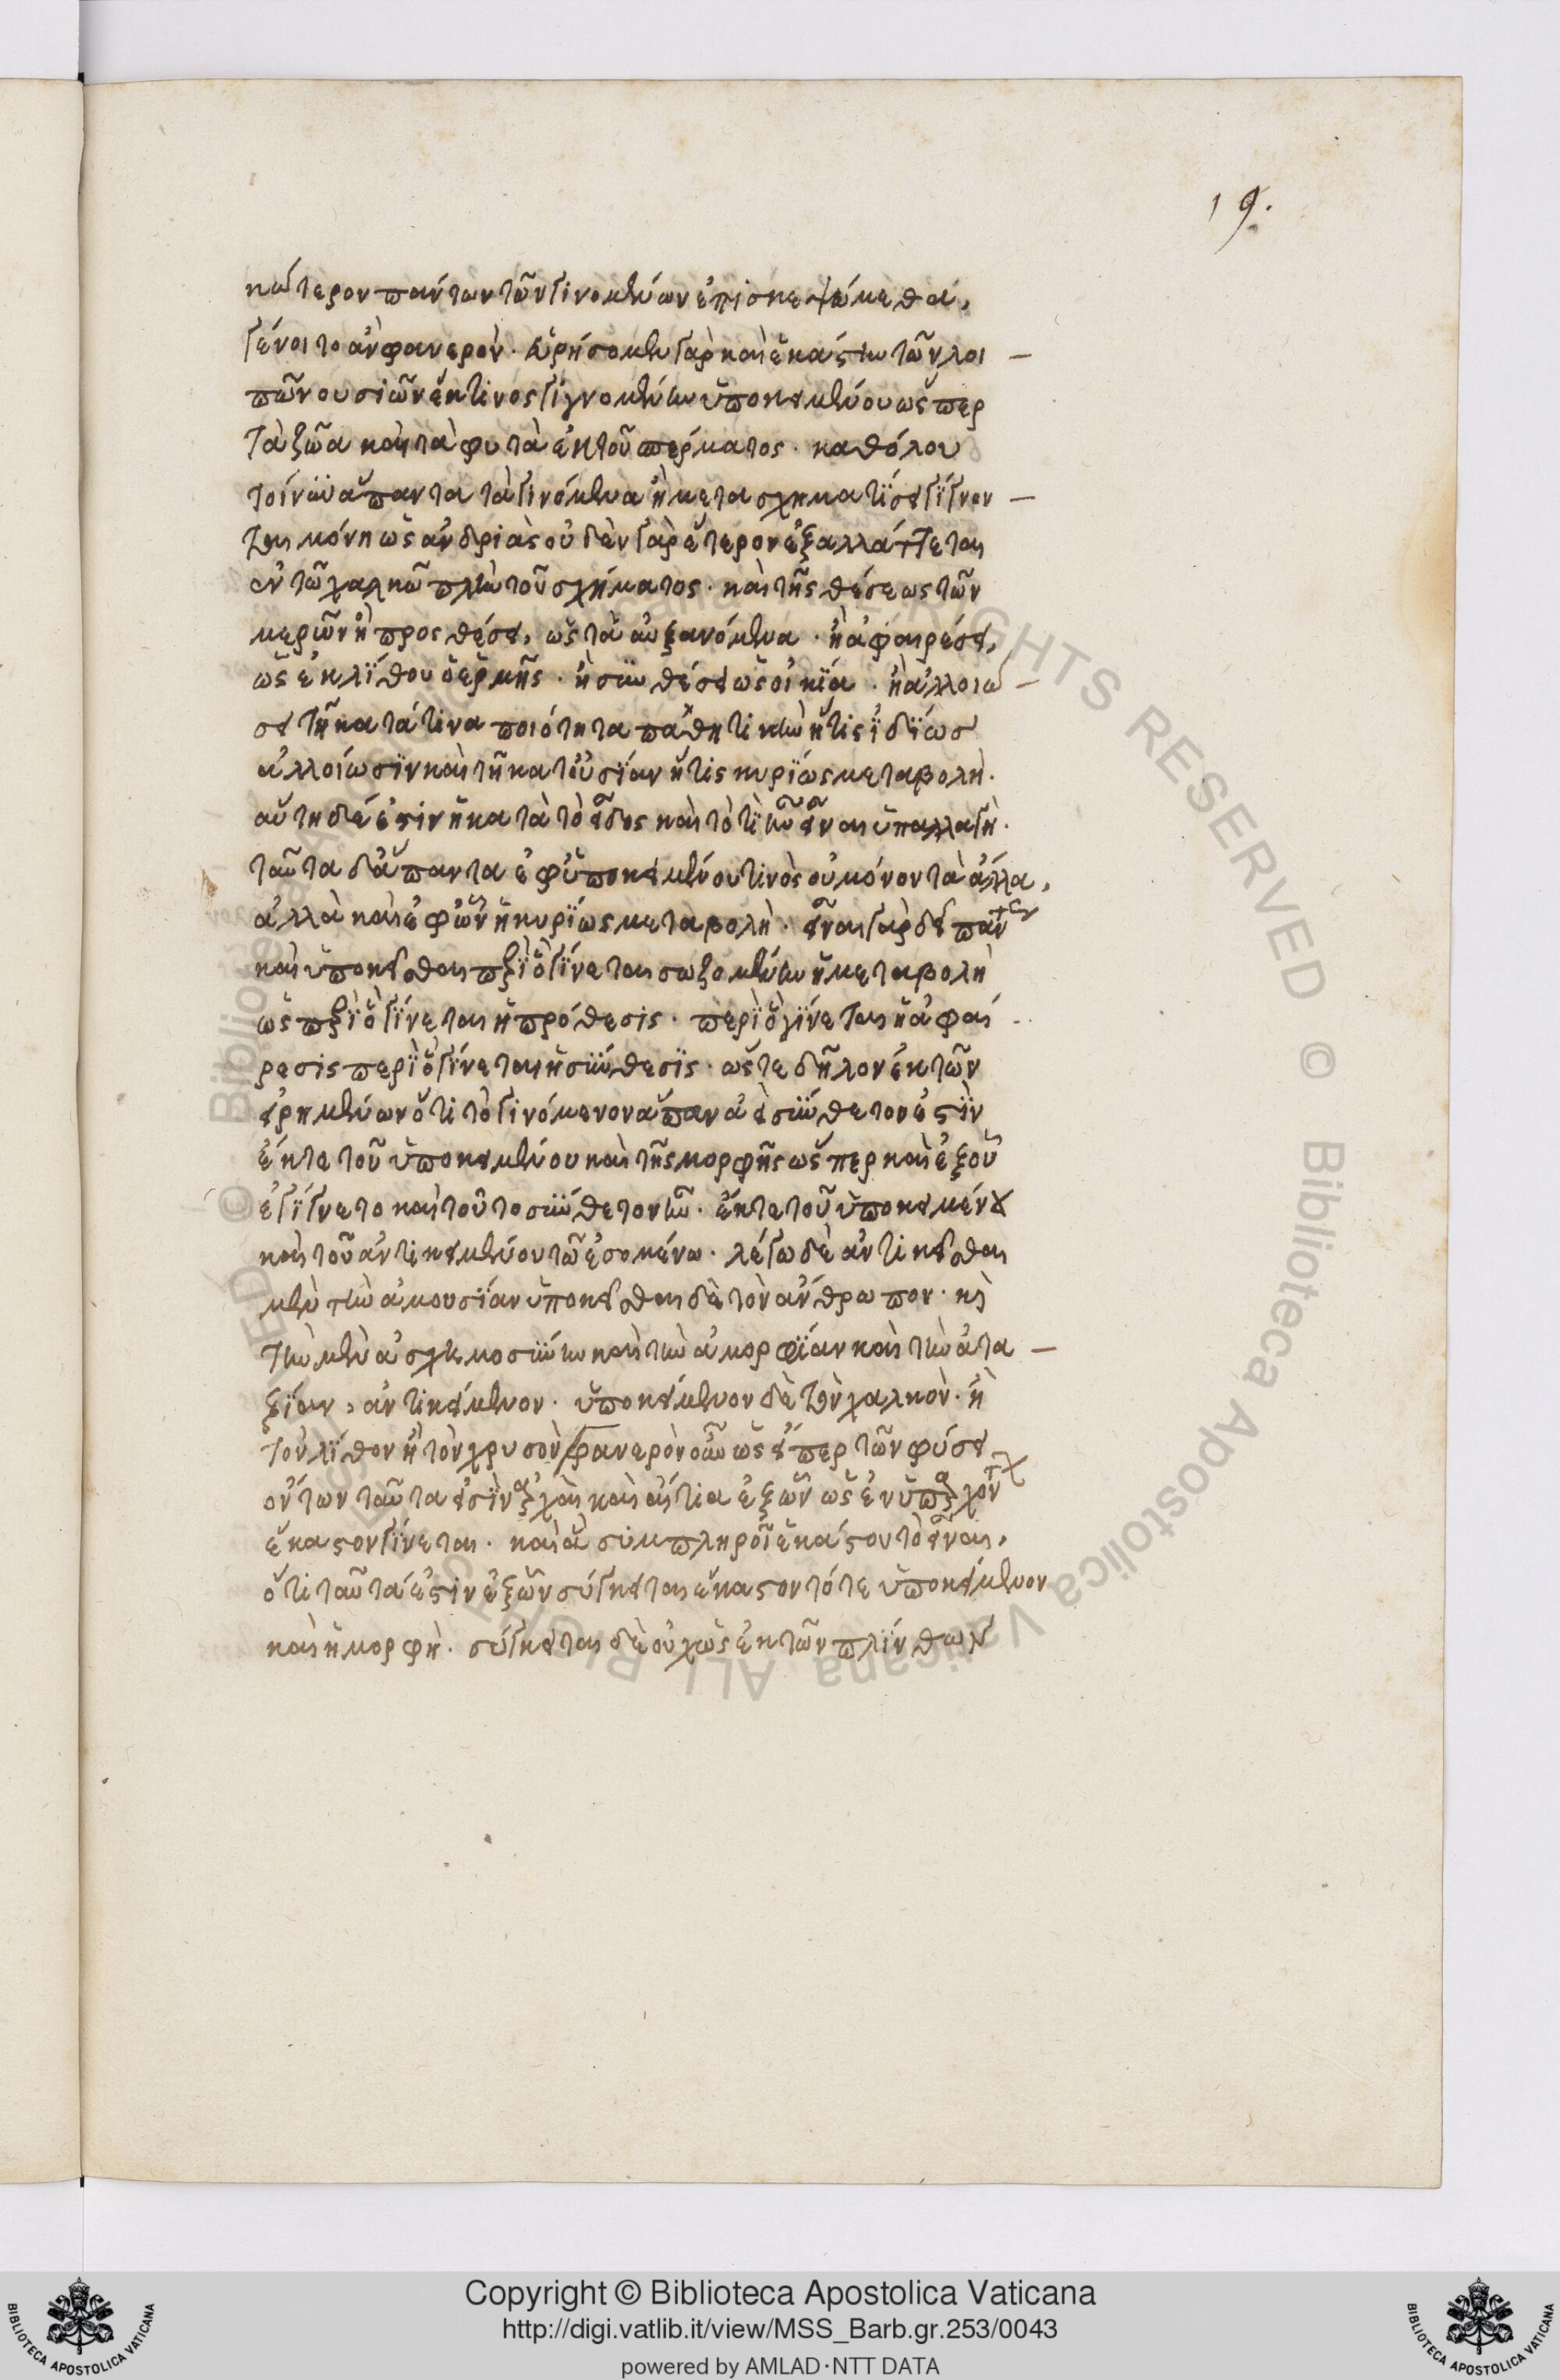 19.
κώτερον πάντων τῶν γινομένων ἐπισκεψώμεθα,
γένοιτο ἂν φανερὸν· εὑρήσομεν γὰρ καὶ ἑκάστην τῶν λοι –
πῶν οὐσιῶν ἔκ τινος γιγνομένην ὑποκειμένου ὥσπερ
τὰ ζῶα καὶ τὰ φυτὰ ἐκ τοῦ σπέρματος· καθόλου
τοίνυν ἅπαντα τὰ γινόμενα ἢ μετασχηματίσει γίγνον –
ται μόνη ὡς ἀνδριὰς οὐδὲν γὰρ ἕτερον ἐξαλλάττεται
ἐν τῶ χαλκῶ πλὴν τοῦ σχήματος· καὶ τῆς θέσεως τῶν
μερῶν ἢ προσθέσει, ὡς τὰ αὐξανόμενα· ἢ ἀφαιρέσει,
ὡς ἐκ λίθου ὁ ἑρμῆς· ἢ συνθέσει ὡς οἰκία· ἢ ἀλλοιώ –
σει τῆ κατά τινα ποιότητα παθητικὴν ἥτις ἰδίως
ἀλλοίωσιν καὶ τῆ κατ' οὐσίαν ἥτις κυρίως μεταβολή·
αὕτη δέ ἐστιν ἡ κατὰ τὸ εἶδος καὶ τὸ τί ἦν εἶναι ὑπαλλαγή·
ταῦτα δ' ἅπαντα ἐφ' ὑποκειμένου τινὸς οὐ μόνον τὰ ἄλλα,
ἀλλὰ καὶ ἐφ' ὧν ἡ κυρίως μεταβολή· εἶναι γὰρ δεῖ πάντως
καὶ ὑποκεῖσθαι περὶ ὃ γίνεται σωζομένην ἡ μεταβολὴ
ὡς περὶ ὃ γίνεται ἡ πρόθεσις· περὶ ὃ γίνεται ἡ ἀφαί -
ρεσις περὶ ὃ γίνεται ἡ σύνθεσις· ὥστε δῆλον ἐκ τῶν
εἰρημένων ὅτι τὸ γινόμενον ἅπαν ἀεὶ σύνθετον ἐστὶν
ἔκ τε τοῦ ὑποκειμένου καὶ τῆς μορφῆς ὥσπερ καὶ ἐξ οὗ
ἐγίγνετο καὶ τοῦτο σύνθετον ἦν· ἔκ τε τοῦ ὑποκειμένου
καὶ τοῦ ἀντικειμένου τῶ ἐσομένω· λέγω δὲ ἀντικεῖσθαι
μὲν τὴν ἀμουσίαν ὑποκεῖσθαι δὲ τὸν ἄνθρωπον· καὶ
τὴν μὲν ἀσχημοσύνην καὶ τὴν ἀμορφίαν καὶ τὴν ἀτα –
ξίαν, ἀντικείμενον· ὑποκείμενον δὲ τὸν χαλκὸν· ἢ
τὸν λίθον ἢ τὸν χρυσὸν φανερὸν οὖν ὡς εἴπερ τῶν φύσει
ὄντων ταῦτα εἰσὶν ἀρχαὶ καὶ αἴτια ἐξ ὧν ὡς ἐνυπαρχόντων
ἕκαστον γίνεται· καὶ ἃ συμπληροῖ ἑκάστου τὸ εἶναι,
ὅτι ταῦτά ἐστιν ἐξ ὧν σύγκειται ἕκαστον τό τε ὑποκείμενον
καὶ ἡ μορφή· σύγκειται δὲ οὐχ ὡς ἐκ τῶν πλίνθων
© Biblioteca Apostolica Vaticana ALL RIGHTS RESERVED
Copyright © Biblioteca Apostolica Vaticana
http://digi.vatlib.it/view/MSS_Barb.gr.253/0043
powered by AMLAD·NTT DATA
BIBLIOTECA APOSTOLICA VATICANA
BIBLIOTECA APOSTOLICA VATICANA